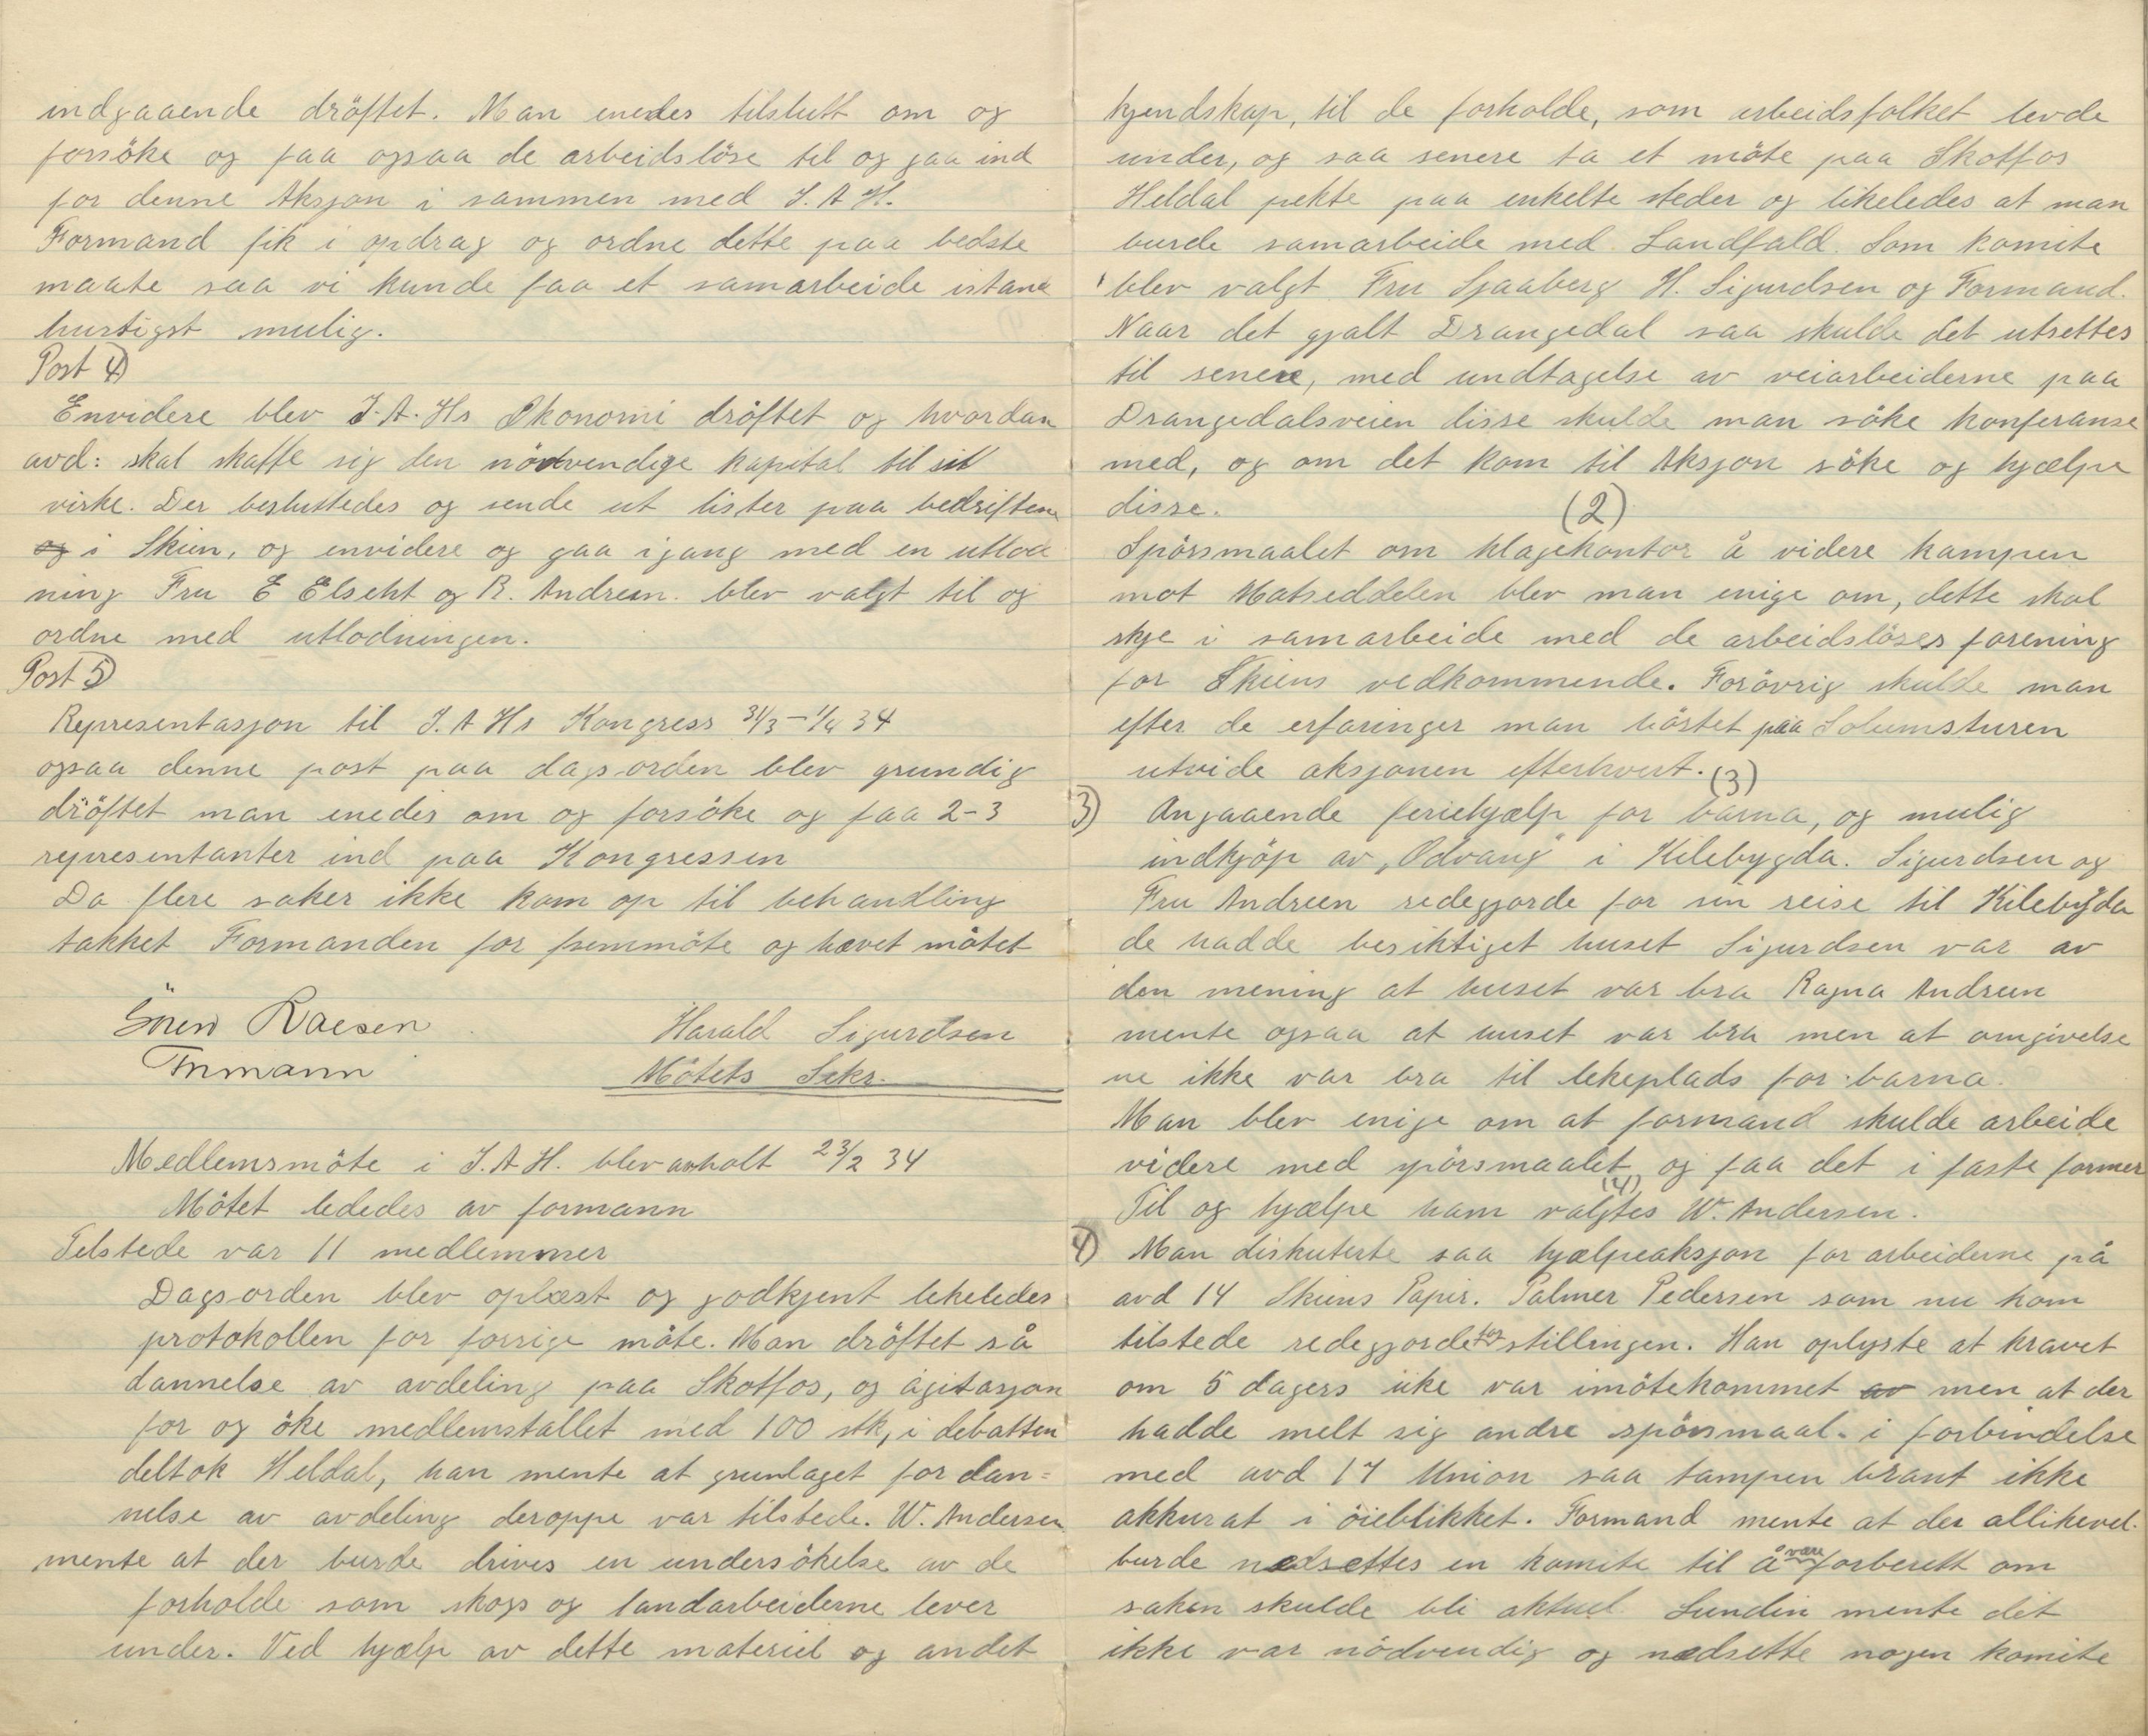 indgaaende dröftet. Man enedes tilslutt om og
forsöke og faa ogsaa de arbeidslöse til og gaa ind
for denne Aksjon i sammen med I. A H.
Formand fik i opdrag og ordne dette paa bedste
maate saa vi kunde faa et samarbeide istand
hurtigst mulig.
Post 4)
Envidere blev I.A.Hs Økonomi dröftet og hvordan
avd: skal skaffe sig den nödvendige kapital til sit
virke. Der besluttedes og sende ut lister paa bedriftene
og i Skien, og envidere og gaa igang med en utlod
ning Fru E Elseht og R. Andreen. blev valgt til og
ordne med utlodningen.
Post 5)
Representasjon til I.A Hs Kongress 31/3 – 1/4 34
ogsaa denne post paa dagsorden blev grundig
dröftet man enedes om og forsöke og faa 2-3
representanter ind paa Kongressen
Da flere saker ikke kom op til behandling
takket Formanden for fremmöte og hævet mötet
Sören Raesen Harald Sigurdsen
Formann Mötets Sekr.
Medlemsmöte i I.A H. blev avholt 23/2 34
Mötet lededes av formann
Tilstede var 11 medlemmer
Dagsorden blev oplæst og godkjent likeledes
protokollen for forrige möte. Man dröftet så
dannelse av avdeling paa Skotfos, og agitasjon
for og öke medlemstallet med 100 stk, i debatten
deltok Heldal, han mente at grunlaget for dan=
nelse av avdeling deroppe var tilstede. W. Andersen
mente at der burde drives en undersökelse av de
forholde som skogs og landarbeiderne lever
under. Ved hjælp av dette materiel og andet
kjendskap, til de forholde, som arbeidsfolket levde
under, og saa senere ta et möte paa Skotfos
Heldal pekte paa enkelte steder og likeledes at man
burde samarbeide med Landfald. Som komite
blev valgt Fru Sjaaberg H. Sigurdsen og Formand.
Naar det gjalt Drangedal saa skulde det utsettes
til senere, med undtagelse av veiarbeiderne paa
Drangedalsveien disse skulde man söke konferanse
med, og om det kom til Aksjon söke og hjælpe
disse.
(2)
Spörsmaalet om klagekontor å videre kampen
mot Matseddelen blev man enige om, dette skal
skje i samarbeide med de arbeidslöses forening
for Skiens vedkommende. Forövrig skulde man
efter de erfaringer man höstet paa Solumsturen
utvide aksjonen efterhvert. (3)
3) Angaaende feriehjælp for barna, og mulig
indkjöp av „Odvang" i Kilebygda. Sigurdsen og
Fru Andreen redegjorde for sin reise til Kilebygda
de hadde besiktiget huset Sigurdsen var av
den mening at huset var bra Ragna Andreen
mente ogsaa at huset var bra men at omgivelse
ne ikke var bra til lekeplads for barna.
Man blev enige om at formand skulde arbeide
videre med spörsmaalet og faa det i faste former
(4)
Til og hjælpe ham valgtes W. Andersen.
4) Man diskuterte saa hjælpeaksjon for arbeiderne på
avd 14 Skiens Papir. Palmer Pedersen som nu kom
tilstede redegjorde for stillingen. Han oplyste at kravet
om 5 dagers uke var imötekommet av men at der
hadde melt sig andre spörsmaal i forbindelse
med avd 17 Union saa tampen brant ikke
akkurat i öieblikket. Formand mente at der allikevel
burde nedsettes en komite til å være forberett om
saken skulde bli aktuel Lundin mente det
ikke var nödvendig og nedsette nogen komite